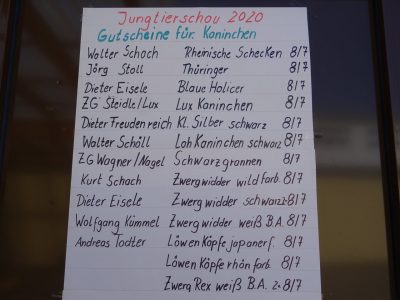 Jungtierschau 2020
Gutscheine für Kaninchen
Walter Schach Rheinische Schecken 8/7
Jörg Stoll Thüringer 8/7
Dieter Eisele Blaue Holicer 8/7
ZG Steidle/Lux Lux Kaninchen 8/7
Dieter Freudenreich Kl. Silber schwarz 8/7
Walter Schöll Loh Kaninchen schwarz 8/7
ZG Wagner/Nagel Schwarzgrannen 8/7
Kurt Schach Zwergwidder wildfarb. 8/7
Dieter Eisele Zwergwidder schwarz 8/7
Wolfgang Kümmel Zwergwidder weiß B.A. 8/7
Andreas Todter Löwen Köpfe japanerf. 8/7
Löwen Köpfe rhön farb. 8/7
Zwerg Rex weiß B.A. 8/7